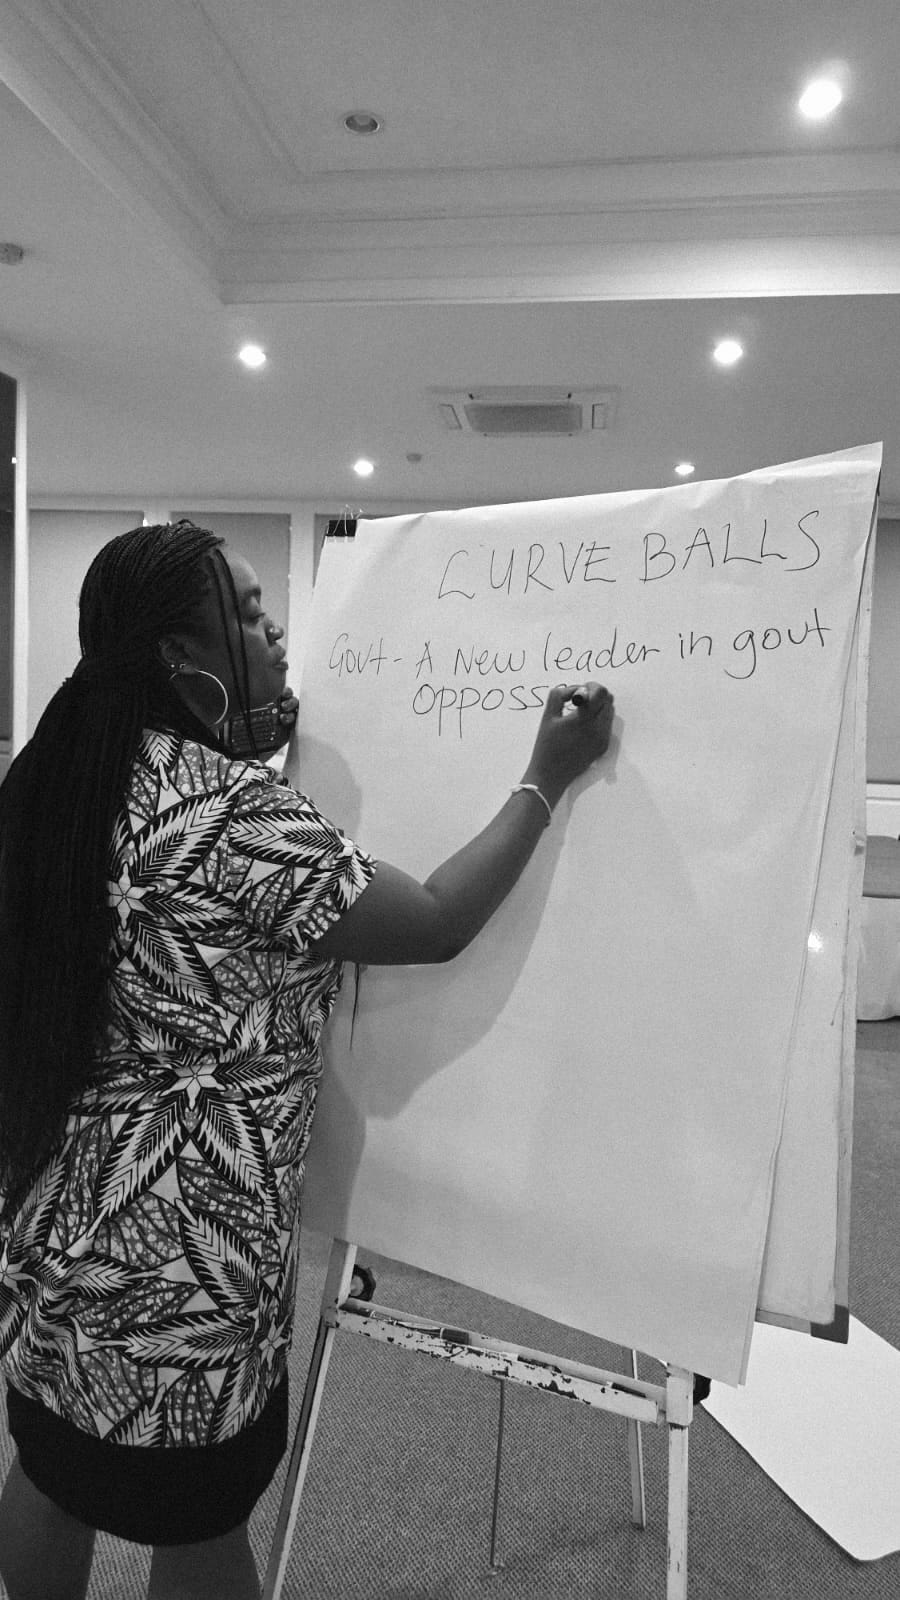 CURVE BALLS
Govt - A New leader in govt
opposs